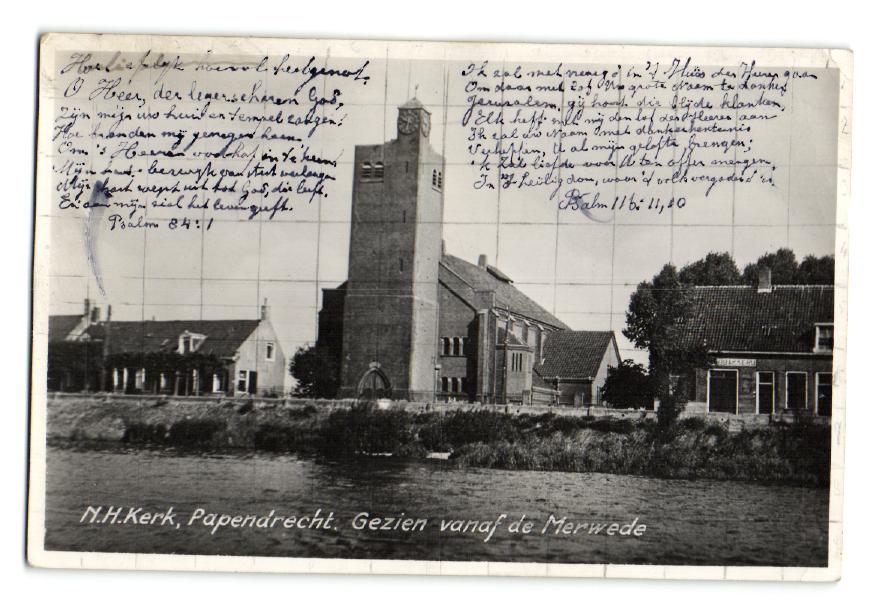 Hoe liefelijk, hoe vol heilgenot,
O Heer, der legerscharen God,
Zijn mijn uw huis en tempel zangen!
Hoe branden mij genegenheên
Om 's Heeren voorhof in te treên
Mijn hart bezwijkt van sterk verlangen
Mijn hart roept uit tot God, die leeft,
En aan mijn ziel het leven geeft.
Psalm 84:1
Ik zal met vreugd in 't Huis des Heeren gaan
Om daar met lof Uw grote Naam te danken
Jerusalem, gij hoort die blijde klanken,
Elk heff' met mij den lof des Heeren aan
Ik zal uw Naam met dankerkentenis
Verheffen, U al mijn geloften brengen;
'k Zal liefde voor U ten offer mengen,
In 't heiligdom, waar 't volk vergaderd is
Psalm 116:11,10
BAKKERIJ
N.H.Kerk, Papendrecht. Gezien vanaf de Merwede